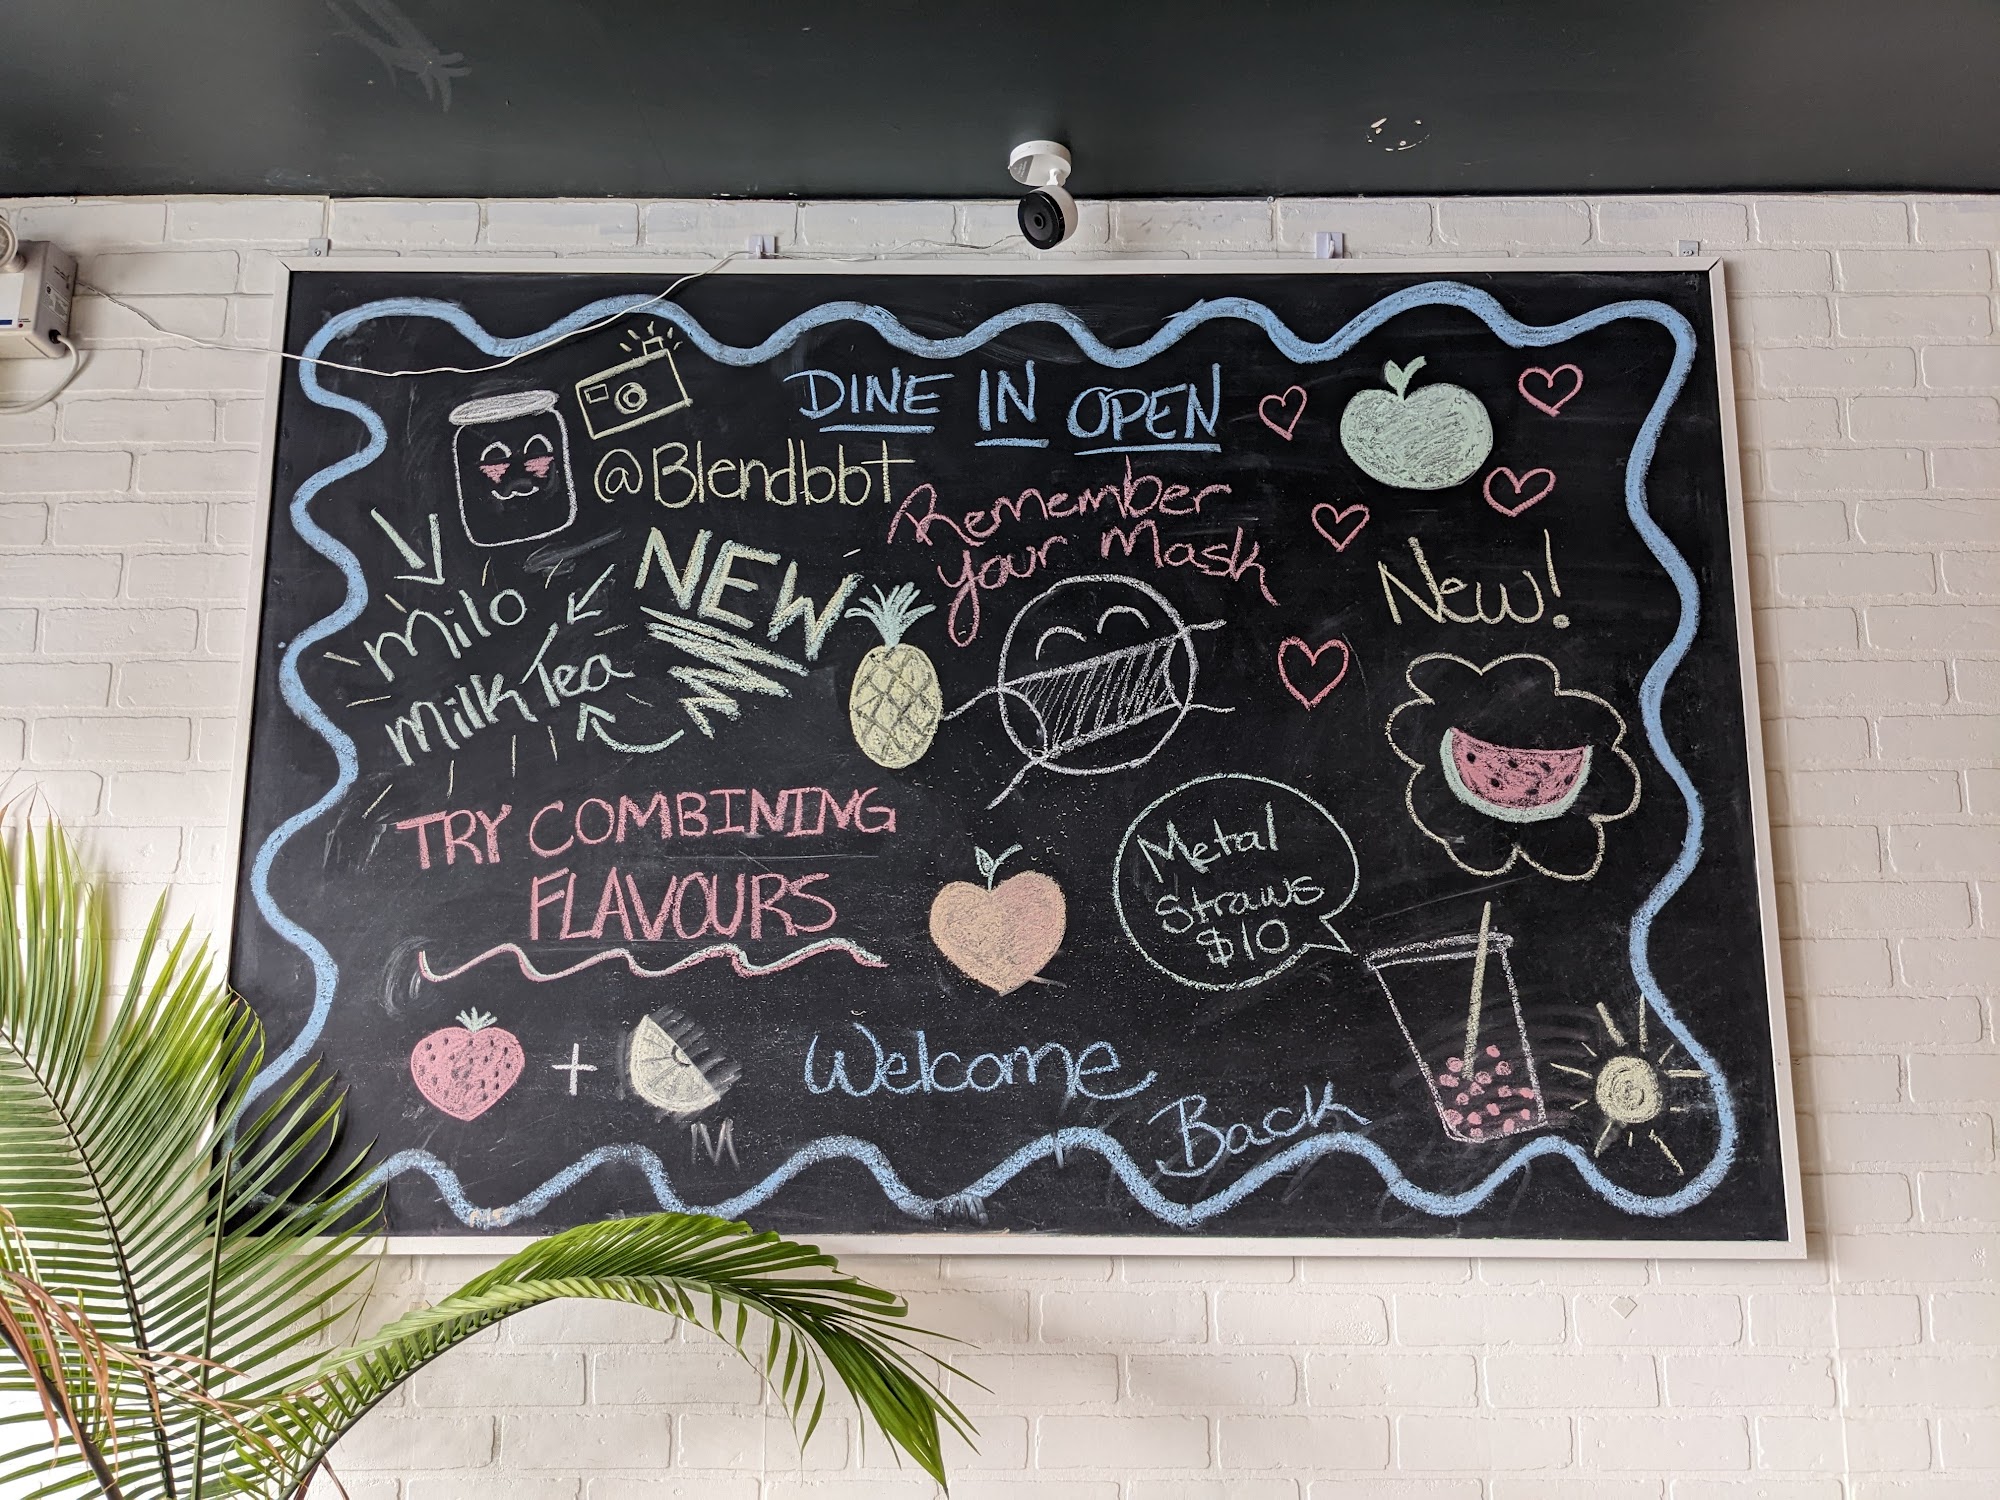 DINE IN OPEN
@Blendbbt
Remember
your Mask
NEW
Milo
Milk Tea
New!
TRY COMBINING
FLAVOURS
Metal
Straws
$10
+
Welcome
Back
M